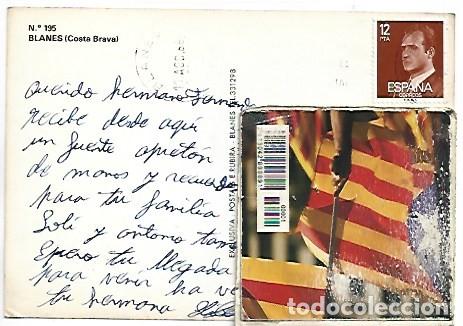 N.º 195
BLANES (Costa Brava)
12
PTA
ESPAÑA
CORREOS
Querido hermano
recibe desde aquí
un fuerte apretón
de manos y recuerdo
para tu familia
Loli y antonio tam
Espero tu llegada
para vener ha ve
tu hermana
EXCLUSIVA POSTALE RUBIRA BLANES
todocoleccion.net